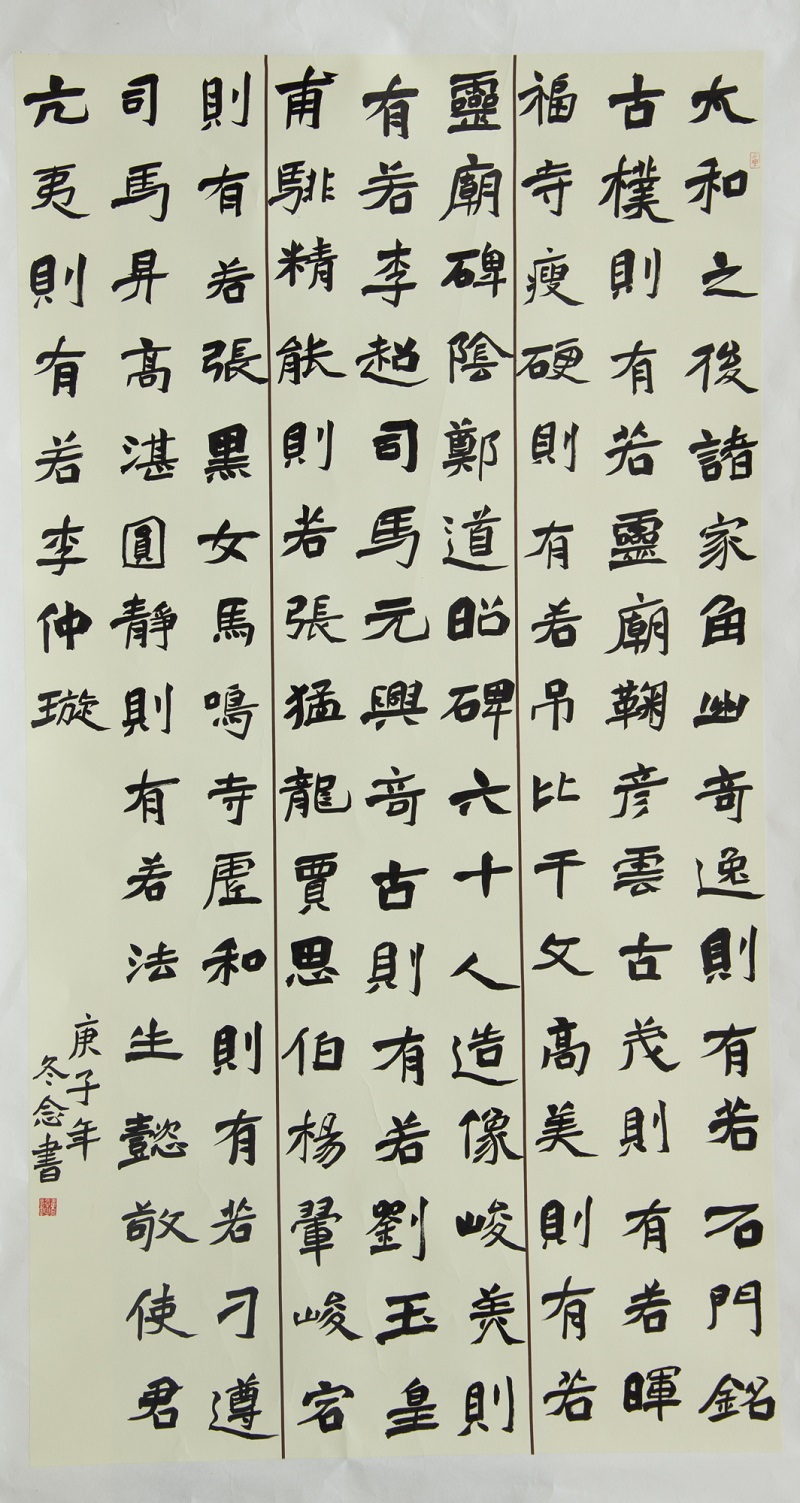 太和之後諸家角出奇逸則有若石門銘
古樸則有若靈廟鞠彥雲古茂則有若暉
福寺瘦硬則有若吊比干文高美則有若
靈廟碑陰鄭道昭碑六十人造像峻美則
有若李超司馬元興奇古則有若劉玉皇
甫騑精能則若張猛龍賈思伯楊翬峻宕
則有若張黑女馬鳴寺虛和則有若刁遵
司馬昇高湛圓靜則有若法生懿敬使君
亢夷則有若李仲璇
庚子年
冬念書